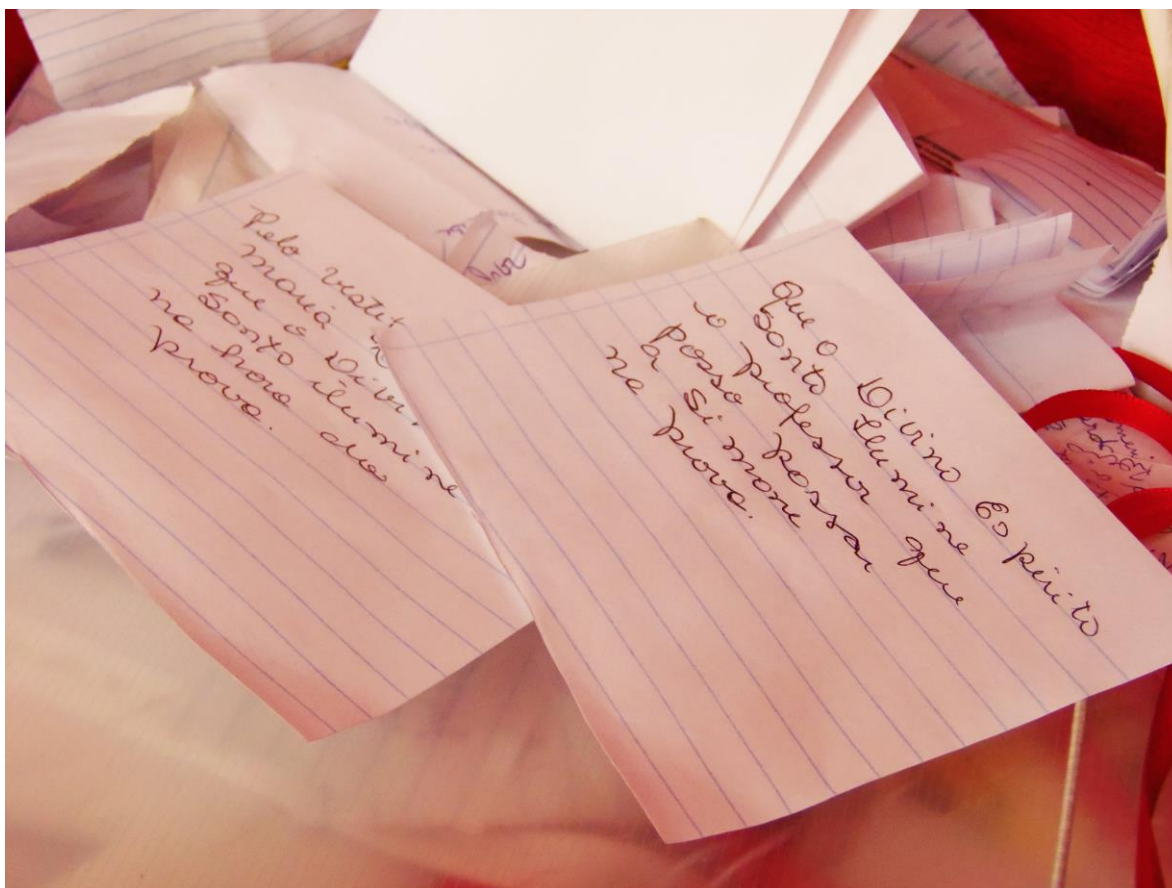 Pelo
Maria
que o Divi
Santo ilumine
na hora da
prova.
Que o Divino Espirito
Santo Ilumine
o professor que
possa passar
a Simone
na prova.